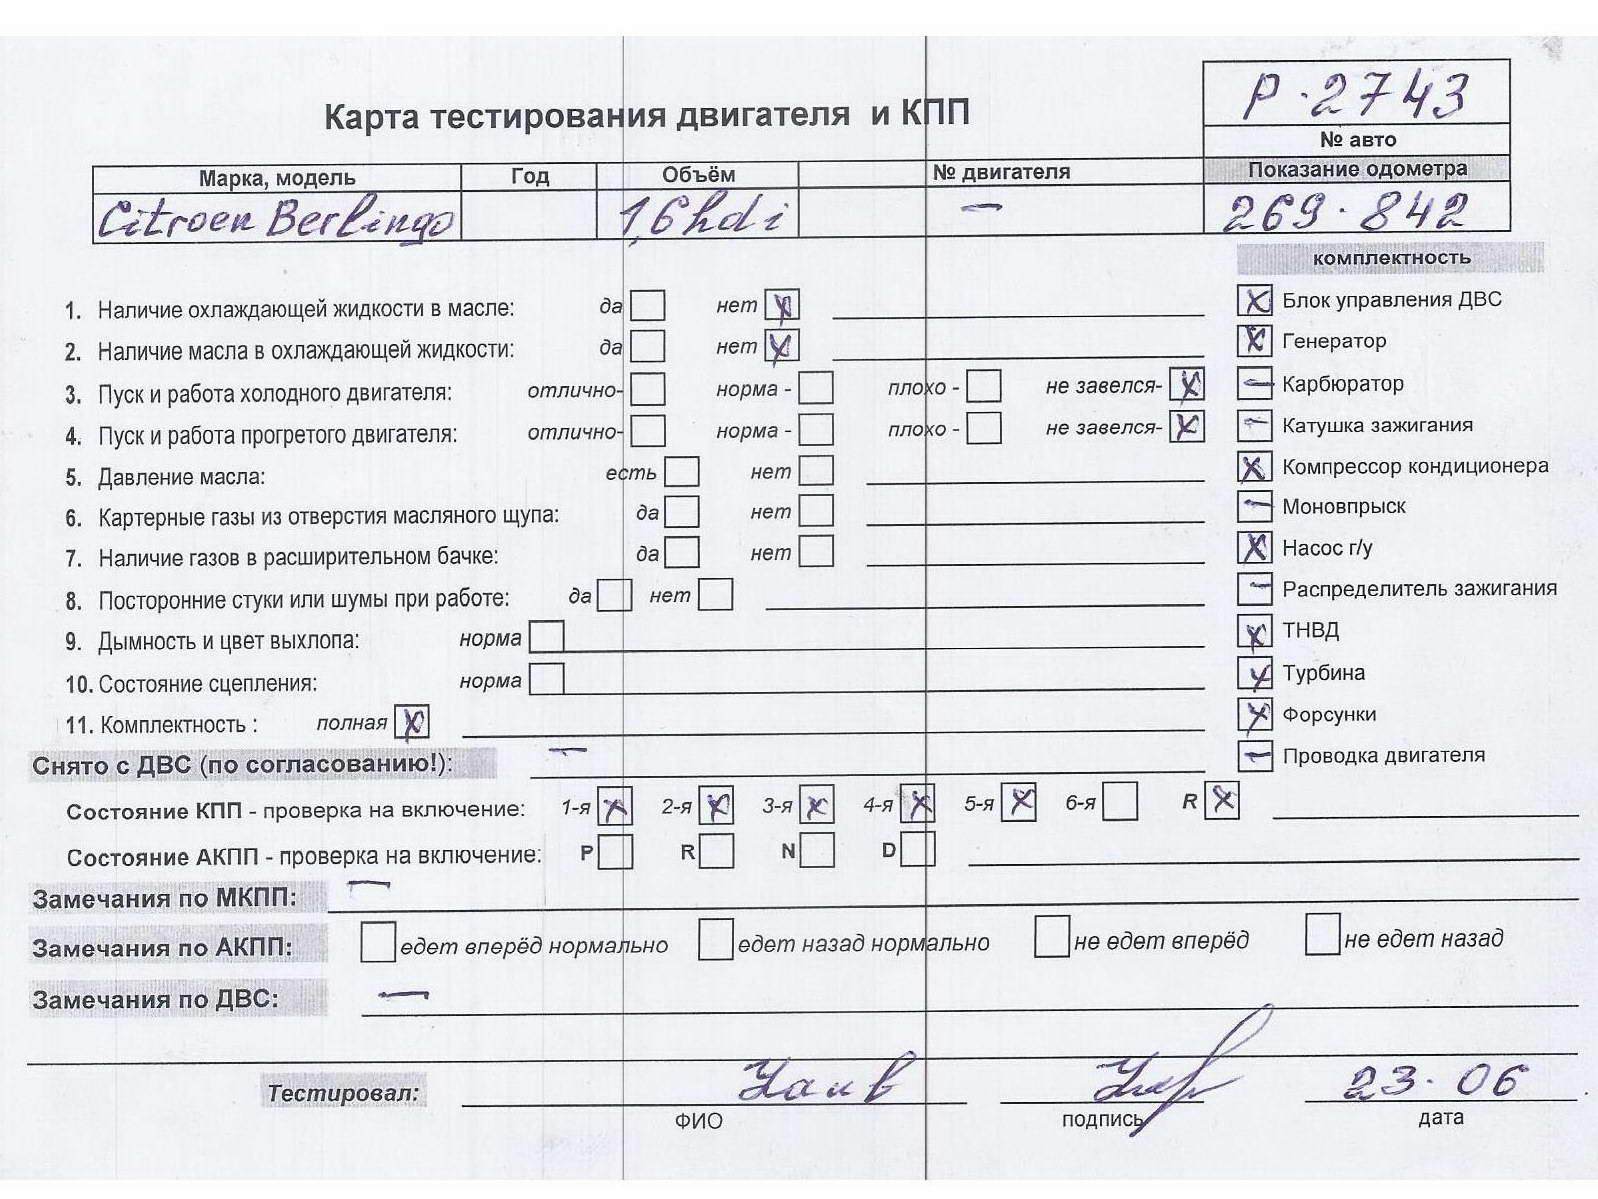 Р-2743
Карта тестирования двигателя и КПП
№ авто
Марка, модель Год Объём № двигателя Показание одометра
Citroen Berlingo 1,6 hdi — 269.842
комплектность
1. Наличие охлаждающей жидкости в масле: да нет X
Блок управления ДВС X
2. Наличие масла в охлаждающей жидкости: да нет X
Генератор X
3. Пуск и работа холодного двигателя: отлично- норма - плохо - не завелся- X
Карбюратор —
4. Пуск и работа прогретого двигателя: отлично- норма - плохо - не завелся- X
Катушка зажигания —
5. Давление масла: есть нет
Компрессор кондиционера X
6. Картерные газы из отверстия масляного щупа: да нет
Моновпрыск —
7. Наличие газов в расширительном бачке: да нет
Насос г/у X
8. Посторонние стуки или шумы при работе: да нет
Распределитель зажигания —
9. Дымность и цвет выхлопа: норма
ТНВД X
10. Состояние сцепления: норма
Турбина X
11. Комплектность : полная X
Форсунки X
Снято с ДВС (по согласованию!): —
Проводка двигателя —
Состояние КПП - проверка на включение: 1-я X 2-я X 3-я X 4-я X 5-я X 6-я R X
Состояние АКПП - проверка на включение: P R N D
Замечания по МКПП: —
Замечания по АКПП: едет вперёд нормально едет назад нормально не едет вперёд не едет назад
Замечания по ДВС: —
Тестировал: 23.06
ФИО подпись дата